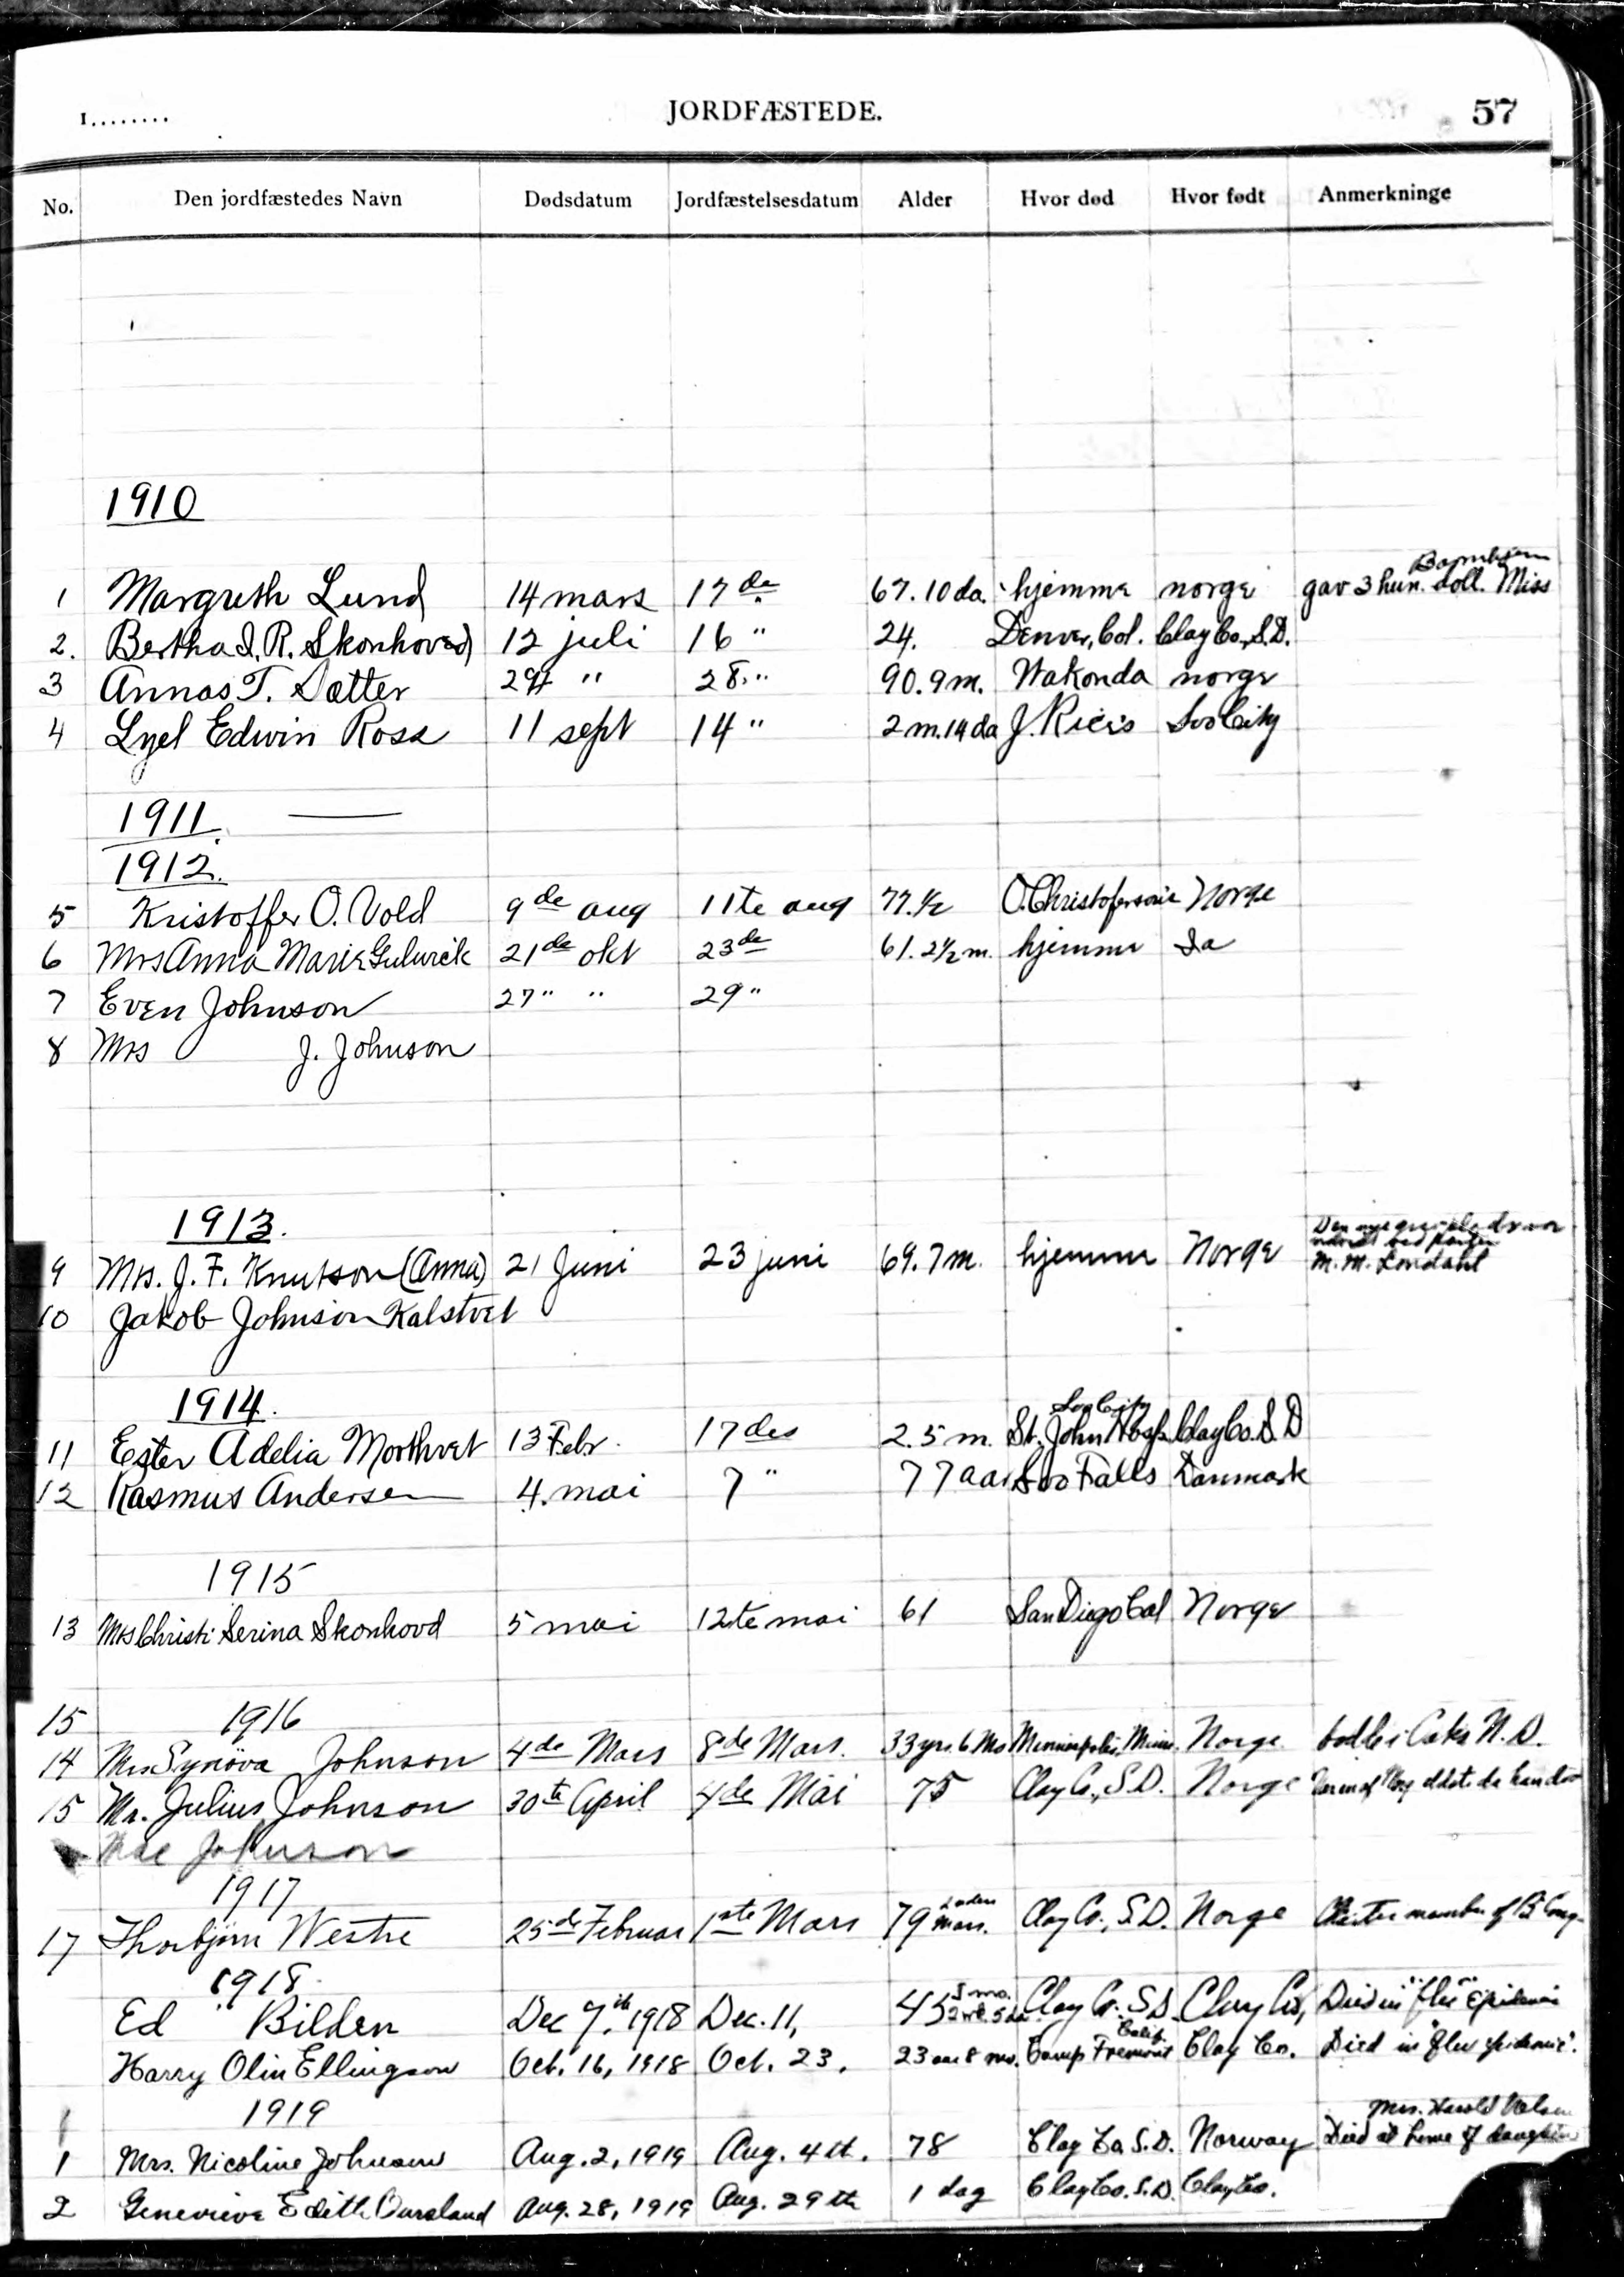 1........ JORDFÆSTEDE. 57
No. Den jordfæstedes Navn Dødsdatum Jordfæstelsesdatum Alder Hvor død Hvor født Anmerkninge
1910
Barnhjem
1 Margreth Lund 14 mars 17de 67. 10 da. hjemme norge gav 3 hun. doll. Miss
2. Bertha I. R. Skonhoved 12 juli 16 " 24. Denver, Col. Clay Co, S.D.
3 Annas T. Sætter 24 " 28. " 90. 9 m. Wakonda norge
4 Lyel Edwin Ross 11 sept 14 " 2 m. 14 da J. Rices Soo City
1911. —
1912.
5 Kristoffer O. Vold 9de aug 11te aug 77. 1/2 O. Christofersons Norge
6 Mrs Anna Marie Gulwick 21de okt 23de 61. 2 1/2 m. hjemme Ia
7 Even Johnson 27 " " 29 "
8 Mrs J. Johnson
1913.
Den nye
ved
9 Mrs. J. F. Knutson (Anna) 21 Juni 23 juni 69. 7 m. hjemme Norge M. M. Londahl
10 Jakob Johnson Kalstvet
1914.
Soo City
11 Ester Adelia Morthvet 13 Febr. 17 des 2. 5 m. St. John Hosp. Clay Co. S. D
12 Rasmus Andersen 4. mai 7 " 77 aar Soo Falls Danmark
1915
13 Mrs Christi Serina Skonhovd 5 mai 12te mai 61 San Diego Cal Norge
15 1916
14 Mrs. Synöva Johnson 4de Mars 8de Mars. 33 yrs. 6 Mo Minneapolis, Minn. Norge Oaks N. D.
15 Mr. Julius Johnson 30te April 4de Mai 75 Clay Co., S.D. Norge eldste da han døde
Mae Johnson
1917
17 Thorbjörn Westre 25de Februar 1ste Mars 79 mars. Clay Co., S.D. Norge Charter member of B. Cong.
1918.
5 mo.
Ed Bilden Dec 7th. 1918 Dec. 11, 43 2 wk. 5 da. Clay Co. S D. Clay Co, Died in "flu" Epidemic
Calif.
Harry Olin Ellingson Oct. 16, 1918 Oct. 23. 23 aar 8 mo. Camp Fremont Clay Co. Died in "flu epidemic".
1919
Mrs. Harold Nelson
1 Mrs. Nicoline Johnson Aug. 2, 1919 Aug. 4th. 78 Clay Co. S.D. Norway Died at home of daughter
2 Genevieve Edith Oursland Aug. 28, 1919 Aug. 29th 1 dag Clay Co. S.D. Clay Co.